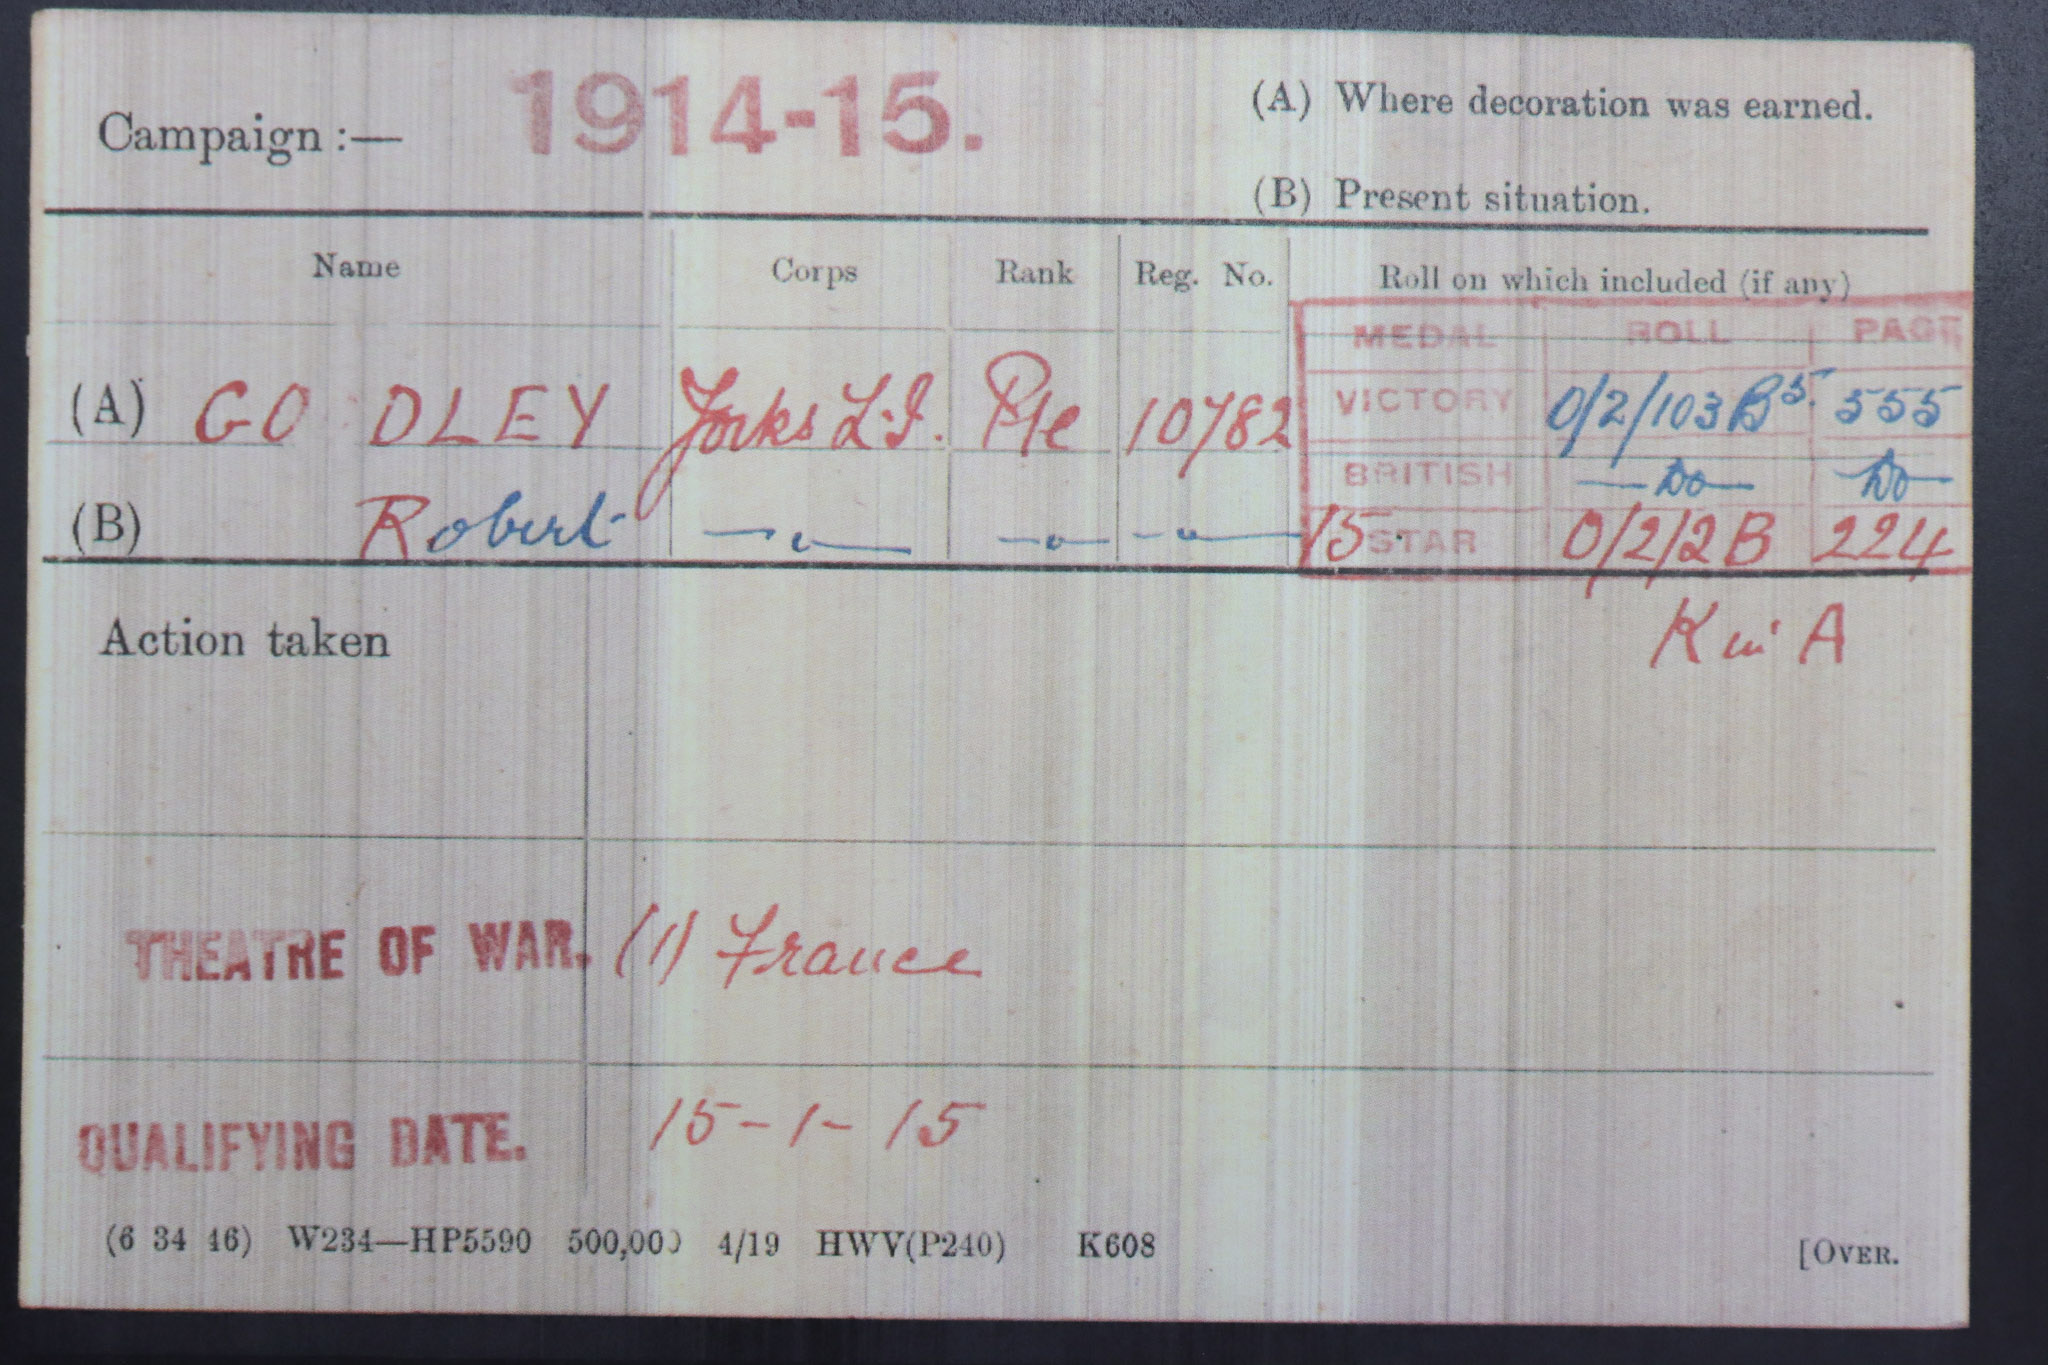 Campaign :— 1914-15.
(A) Where decoration was earned.
(B) Present situation.
Name Corps Rank Reg. No. Roll on which included (if any)
MEDAL ROLL PAGE
(A) GODLEY Yorks L.I. Pte 10782 VICTORY 0/2/103 B5. 555
BRITISH —Do— Do—
(B) Robert —"— —"— —"— 15 STAR 0/2/2B 224
Action taken K in A
THEATRE OF WAR. (1) France
QUALIFYING DATE. 15-1-15
(6 34 46) W234—HP5590 500,000 4/19 HWV(P240) K608 [OVER.